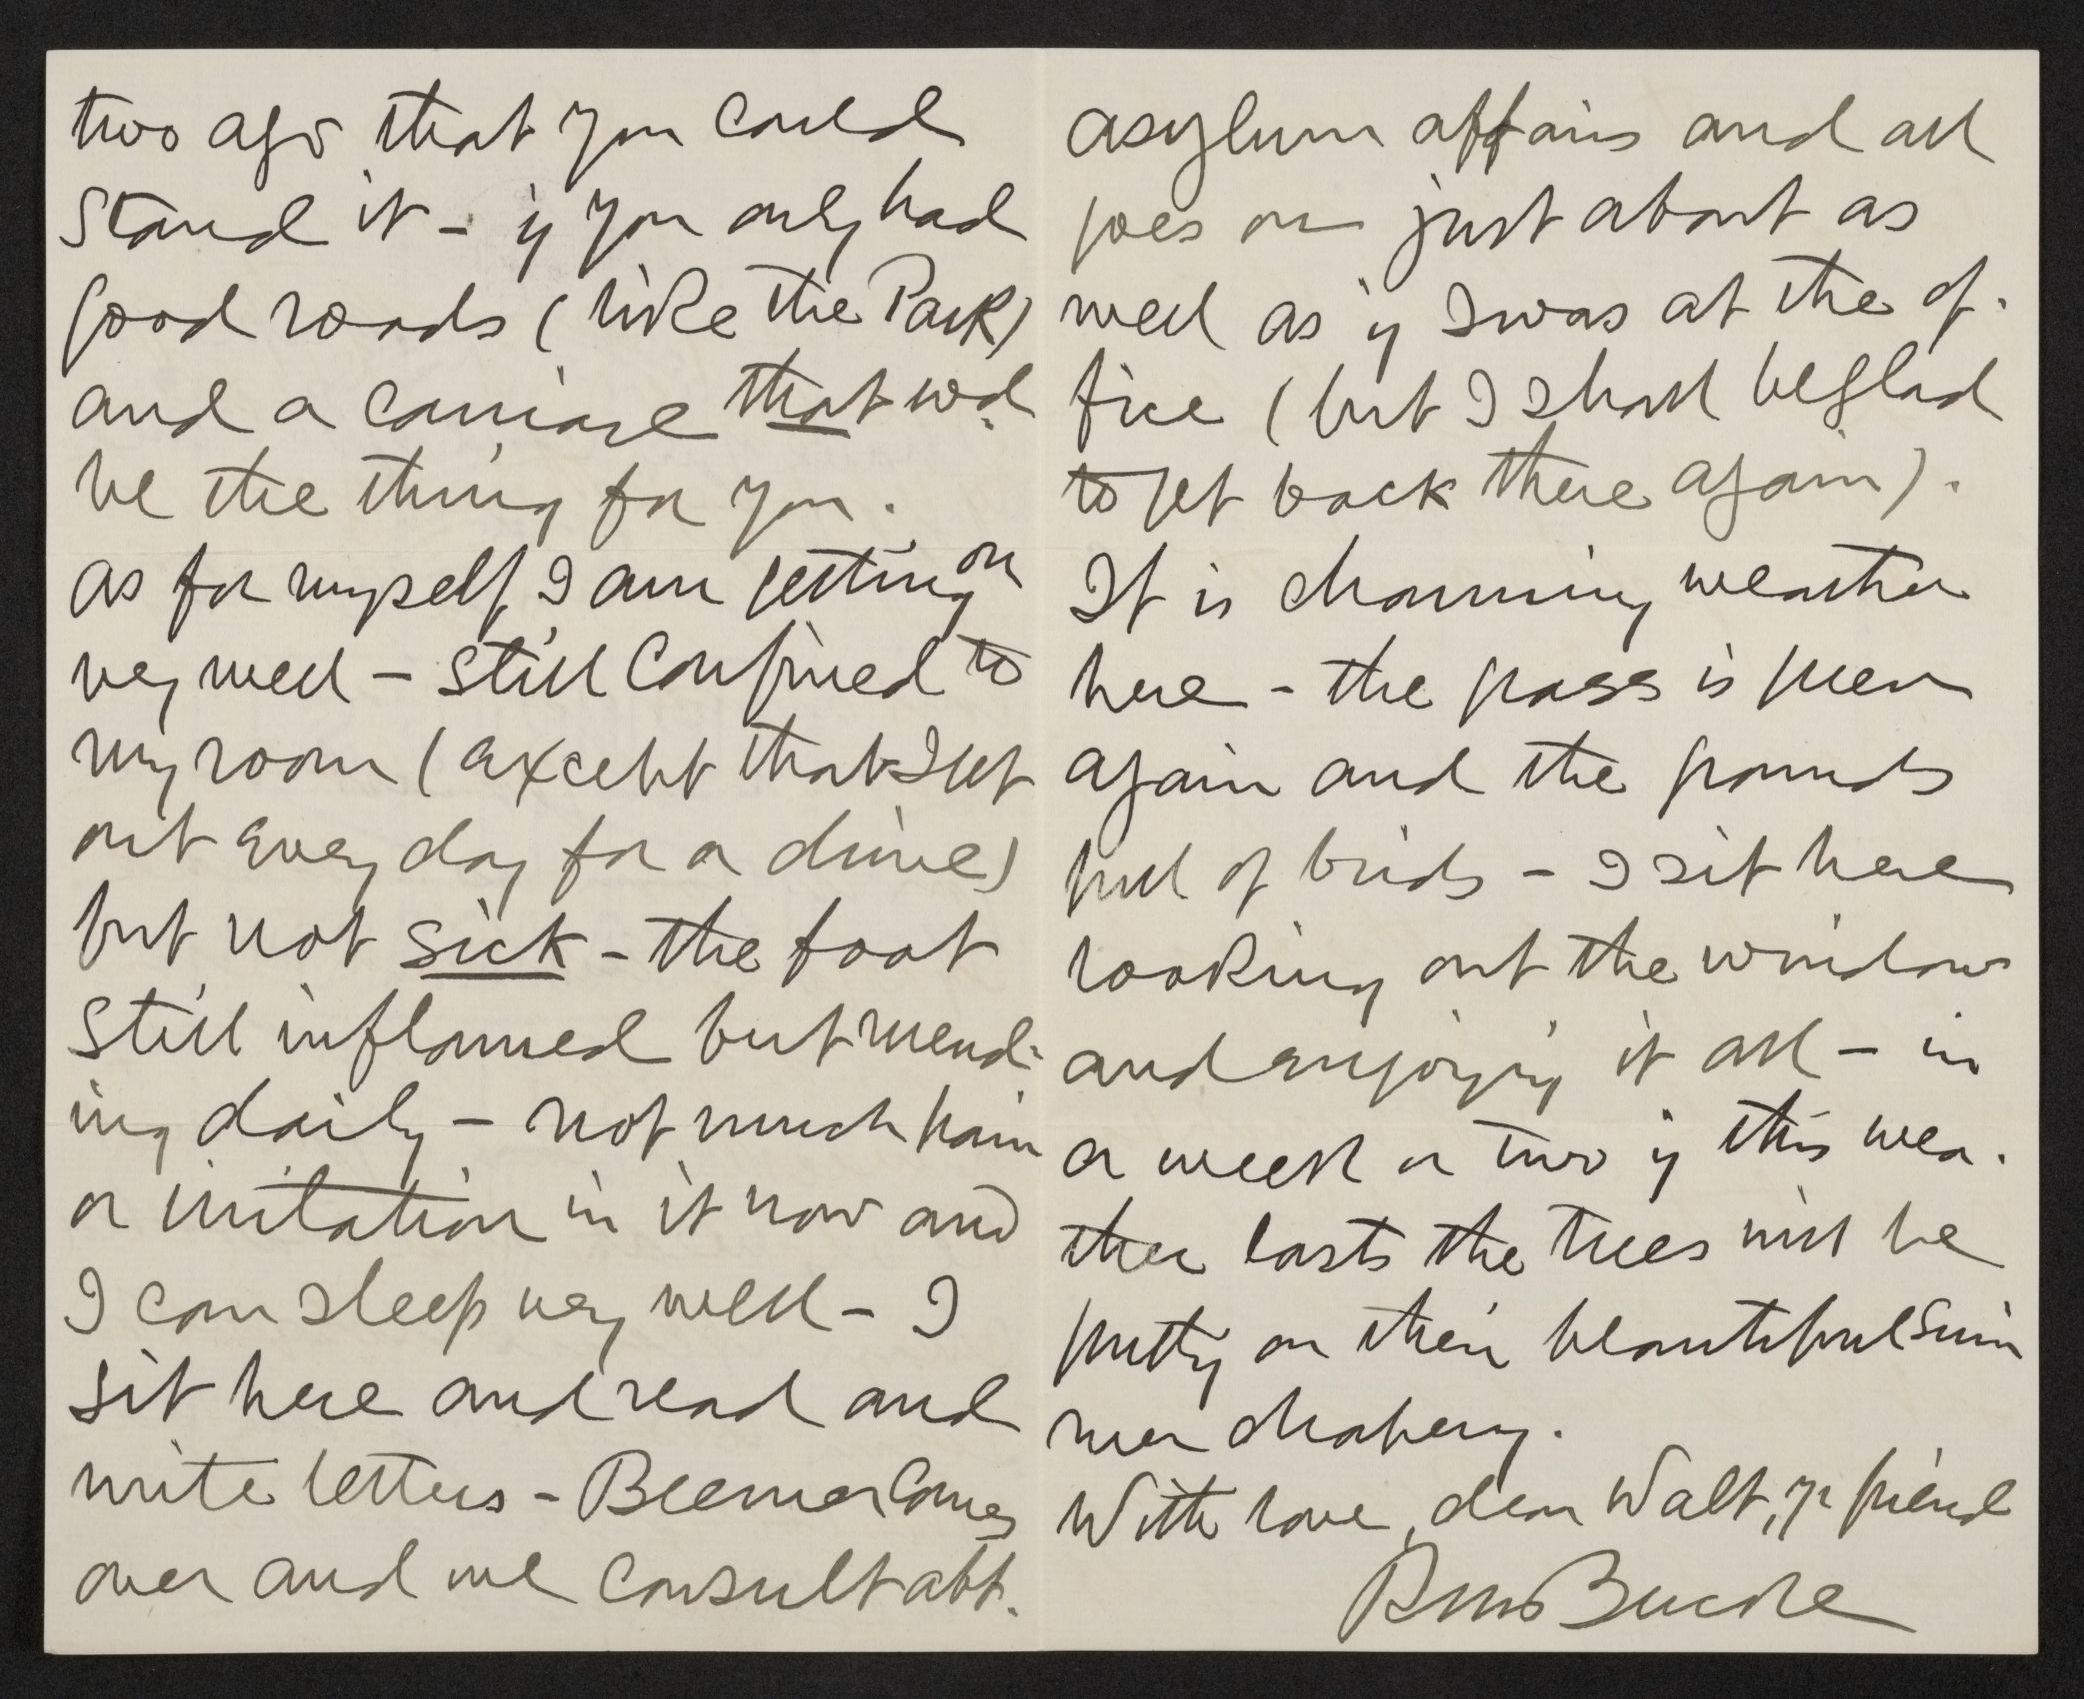 two ago that you could
stand it - if you only had
good roads (like the Park)
and a carriage that wd.
be the thing for you.
as for myself, I am getting on
very well - still confined to
my room (except that I get
out every day for a drive)
but not sick - the foot
still inflamed but mend-
ing daily - not much pain
or irritation in it now and
I can sleep very well - I
sit here and read and
write letters - Beemer comes
over and we consult abt.
asylum affairs and all
goes on just about as
well as if I was at the of-
fice (but I shall be glad
to get back there again).
It is charming weather
here - the grass is green
again and the grounds
full of birds - I sit here
looking out the window
and enjoying it all - in
a week or two if this wea-
ther lasts the trees will be
putting on their beautiful sum
mer drapery.
With love, dear Walt, yr friend
RM Bucke